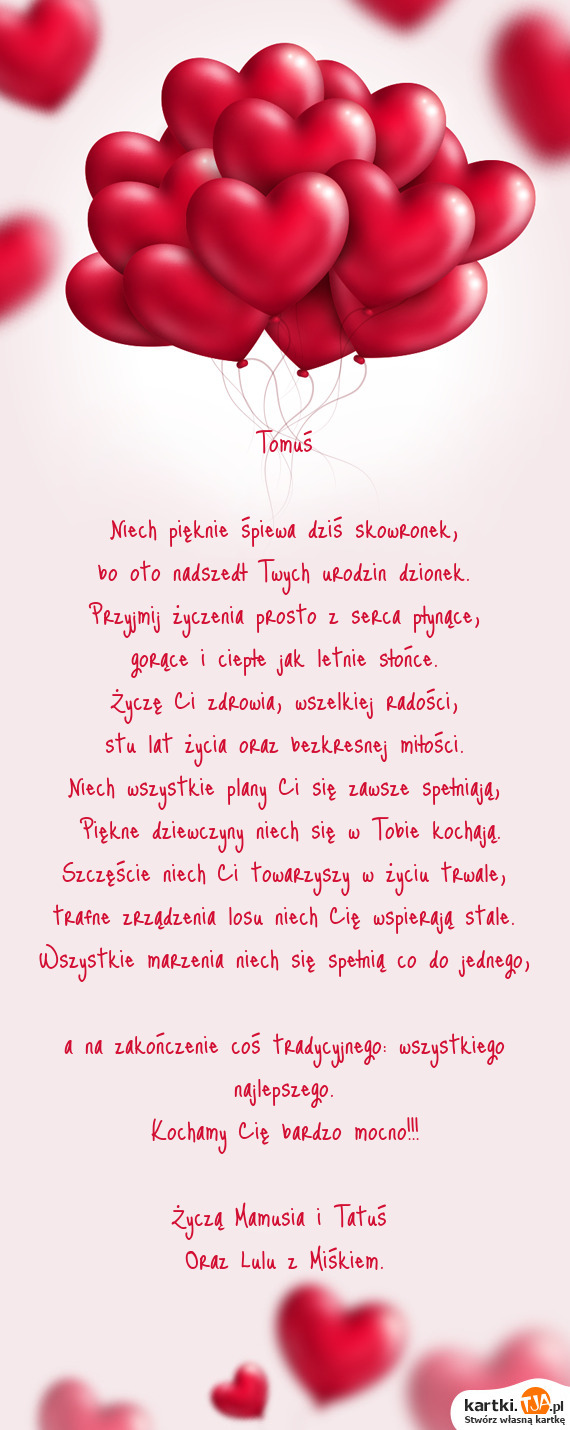 Tomuś
Niech pięknie śpiewa dziś skowronek,
bo oto nadszedł Twych urodzin dzionek.
Przyjmij życzenia prosto z serca płynące,
gorące i ciepłe jak letnie słońce.
Życzę Ci zdrowia, wszelkiej radości,
stu lat życia oraz bezkresnej miłości.
Niech wszystkie plany Ci się zawsze spełniają,
Piękne dziewczyny niech się w Tobie kochają.
Szczęście niech Ci towarzyszy w życiu trwale,
trafne zrządzenia losu niech Cię wspierają stale.
Wszystkie marzenia niech się spełnią co do jednego,
a na zakończenie coś tradycyjnego: wszystkiego
najlepszego.
Kochamy Cię bardzo mocno!!!
Życzą Mamusia i Tatuś
Oraz Lulu z Miśkiem.
kartki.TJA.pl
Stwórz własną kartkę